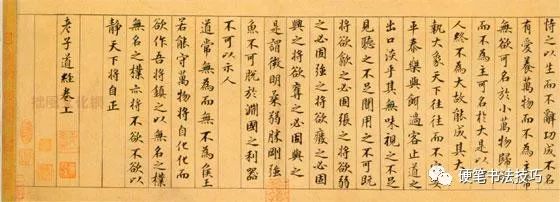 恃之以生而不辭功成不名
有愛養萬物而不為主常
無欲可名於小萬物歸
而不為主可名於大是以
人終不為大故能成其大
執大象天下往往而不害安
平泰樂與餌過客止道之
出口淡乎其無味視之不足
見聽之不足聞用之不可既
將欲歙之必固張之將欲弱
之必固強之將欲廢之必固
興之將欲奪之必固與之
是謂微明柔弱勝剛強
魚不可脫於淵國之利器
不可以示人
道常無為而無不為侯王
若能守萬物將自化化而
欲作吾將鎮之以無名之樸
無名之樸亦將不欲不欲以
靜天下將自正
老子道經卷上
拙風文化網
硬笔书法技巧